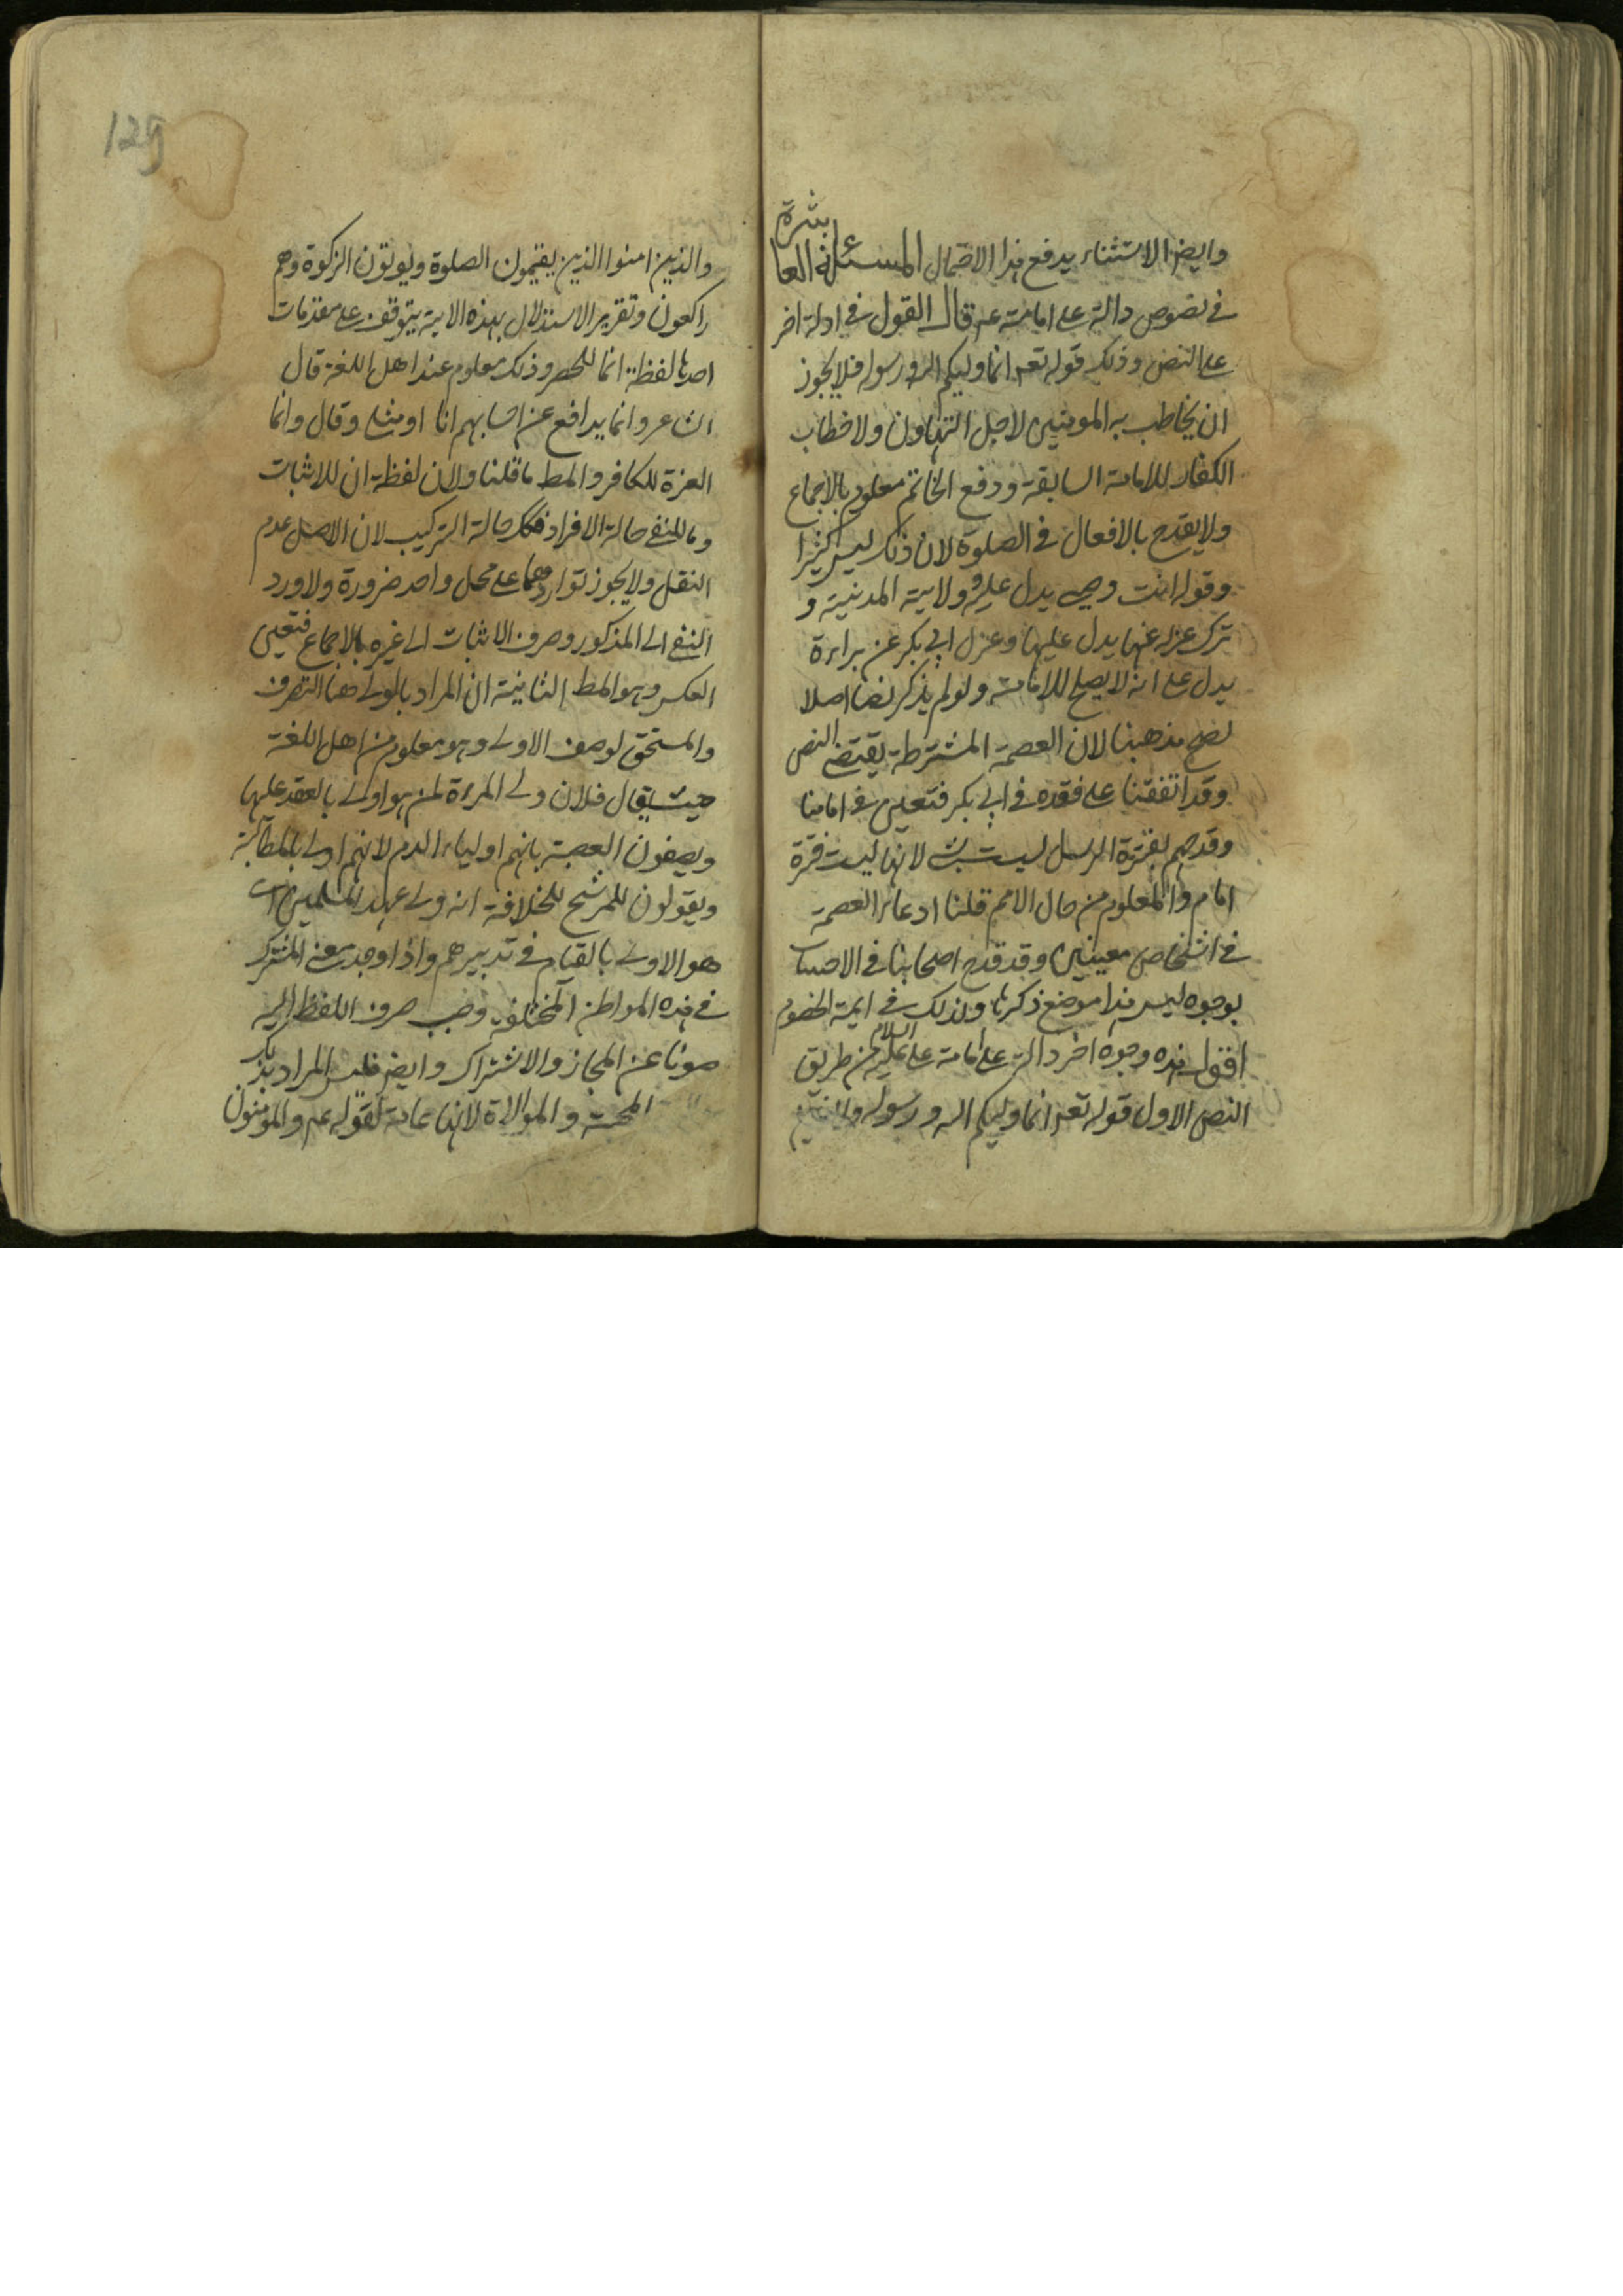 وايض الاستثناء يدفع هذا الاحتمال المسئلة العاشرة
في نصوص دالة على امامته عم قال القول في ادلة اخر
على النص وذلك قوله تعه انما وليكم الله ورسوله فلا يجوز
ان يخاطب به المومنين لاجل التهاون ولا خطاب
الكفار للامامة السابقة ودفع الخاتم معلوم بالاجماع
ولا يقدح بالافعال في الصلوة لان ذلك ليس كثيرا
وقوله انت وصي يدل عليه ولاية المدينة و
ترك عزله عنها يدل عليها وعزل ابي بكر عن براءة
يدل على انه لا يصلح للامامة ولو لم يذكر نصا اصلا
لصح مذهبنا لان العصمة المشترطة يقتضي النص
وقد اتفقنا على فقده في ابي بكر فتعين في امامنا
وقدحهم بفترة الرسل ليست بشي لانها ليست فترة
امام والمعلوم من حال الامم قلنا ادعاء العصمة
في اشخاص معينين وقد قدح اصحابنا في الاصل
بوجوه ليس هذا موضع ذكرها وكذلك في ايمة الخصوم
اقول هذه وجوه اخر دالة على امامة علي عليه السلام من طريق
النص الاول قوله تعه انما وليكم الله ورسوله
129
والذين امنوا الذين يقيمون الصلوة ويوتون الزكوة وهم
راكعون وتقرير الاستدلال بهذه الاية يتوقف على مقدمات
احديها لفظة انما للحصر وذلك معلوم عند اهل اللغة قال
الشاعر وانما يدافع عن احسابهم انا او مثلي وقال وانما
العزة للكافر والمط ما قلنا ولان لفظة ان للاثبات
وما للنفي حالة الافراد فكك حالة التركيب لان الاصل عدم
النقل ولا يجوز تواردهما على محل واحد ضرورة ولا ورد
النفي الى المذكور وصرف الاثبات الى غيره بالاجماع فتعين
العكس وهو المط الثانية ان المراد بالولي هنا التصرف
والمستحق لوصف الاولى وهو معلوم من اهل اللغة
حيث يقال فلان ولي المرءة لمن هو اولى بالعقد عليها
ويصفون العصبة بانهم اولياء الدم لانهم اولى بالمطالبة
ويقولون للمرشح للخلافة انه ولي عهد المسلمين اي
هو الاولى بالقيام في تدبيرهم واذا وجدت معنى المشترك
في هذه المواطن المختلفة وجب صرف اللفظ اليه
صونا عن المجاز والاشتراك وايض فليس المراد بذلك
المحبة والموالاة لانها عامة لقوله عم والمومنون